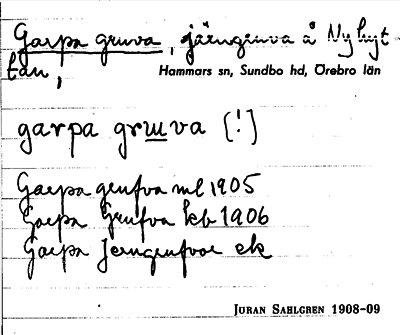 Garpa gruva, järngruva å Nyhyt
tan,
Hammars sn, Sundbo hd, Örebro län
garpa gruva [!]
Garpa grufva ml 1905
Garpa Grufva kb 1906
Garpa Jerngrufvor ek
JURAN SAHLGREN 1908-09